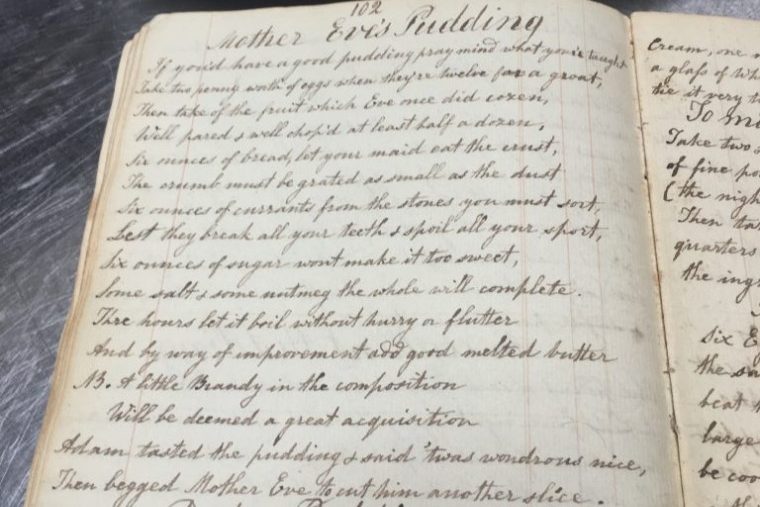 102
Mother Eve's Pudding
If you'd have a good pudding pray mind what you're taught
Take two penny worth of eggs when they're twelve for a groat,
Then take of the fruit which Eve once did cozen,
Well pared & well chop'd at least half a dozen,
Six ounces of bread, let your maid eat the crust,
The crumb must be grated as small as the dust
Six ounces of currants from the stones you must sort,
Lest they break all your teeth & spoil all your sport,
Six ounces of sugar wont make it too sweet,
Some salt & some nutmeg the whole will complete.
Thre hours let it boil without hurry or flutter
And by way of improvement add good melted butter
NB. A little Brandy in the composition
Will be deemed a great acquisition
Adam tasted the pudding & said 'twas wondrous nice,
Then begged Mother Eve to cut him another slice.
Cream, one
a glass of
tie it very
To
Take two
of fine
(the
Then
quarters
the
Six
the
beat
large
be